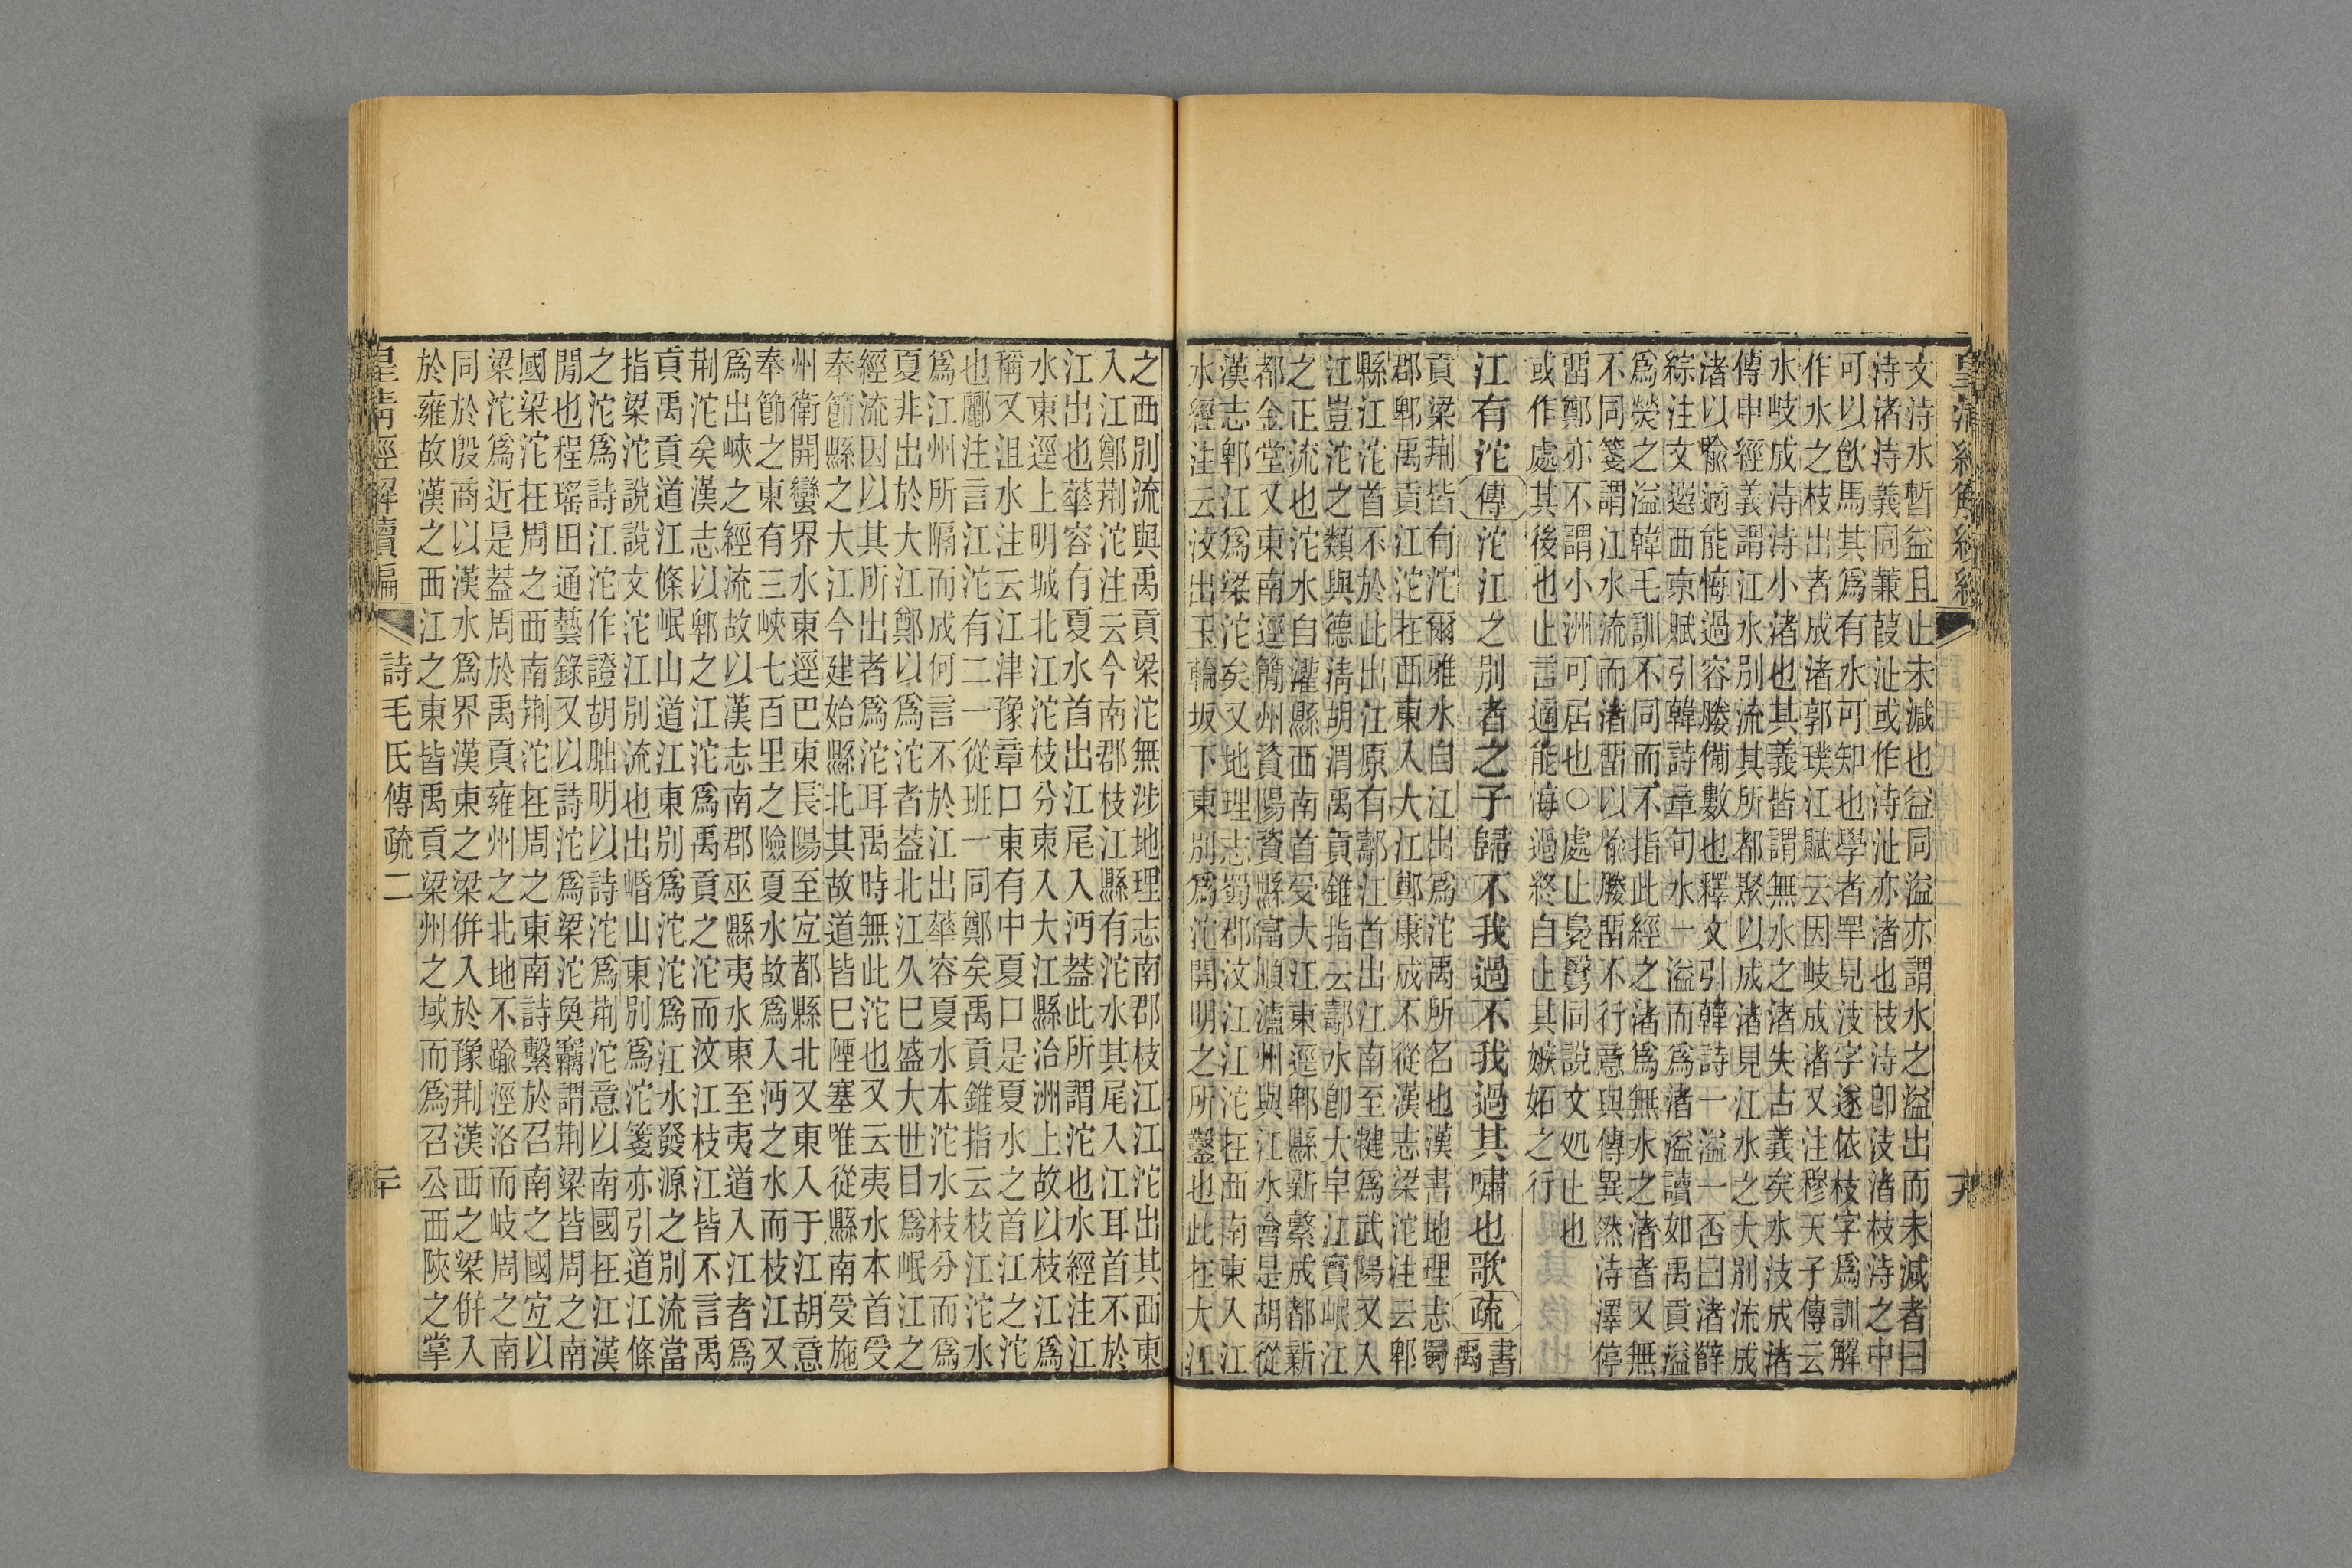 文洔水暫益且止未減也益同溢亦謂水之溢出而未減者曰
洔渚洔義同蒹葭沚或作洔沚亦渚也枝洔卽汥渚枝洔之中
可以飮馬其爲有水可知也學者罕見汥字遂依枝字爲訓解
作水之枝出者成渚郭璞江賦云因岐成渚又注穆天子傳云
水岐成洔洔小渚也其義皆謂無水之渚失古義矣水汥成渚
傳申經義謂江水別流其所都聚以成渚見江水之大別流成
渚以喩適能悔過容媵備數也釋文引韓詩一溢一否曰渚薛
綜注文選西京賦引韓詩章句水一溢而爲渚溢讀如禹貢溢
爲熒之溢韓毛訓不同而不指此經之渚爲無水之渚者又無
不同箋謂江水流而渚畱以喩媵畱不行意與傳異然洔澤停
畱鄭亦不謂小洲可居也○處止㲋聲同說文処止也
或作處其後也止言適能悔過終自止其嫉妬之行
江有沱傳沱江之別者之子歸不我過不我過其嘯也歌疏書禹
貢梁荆皆有沱爾雅水自江出爲沱禹所名也漢書地理志蜀
郡郫禹貢江沱在西東入大江鄭康成不從漢志梁沱注云郫
縣江沱首不於此出江原有𨞪江首出江南至犍爲武陽又入
江豈沱之類與德淸胡渭禹貢錐指云𨞪水卽大皁江實岷江
之正流也沱水自灌縣西南首受大江東逕郫縣新繁成都新
都金堂又東南逕簡州資陽資縣富順瀘州與江水會是胡從
漢志郫江爲梁沱矣又地理志蜀郡汶江江沱在西南東入江
水經注云汶出玉輪坂下東別爲沱開明之所鑿也此在大江
之西別流與禹貢梁沱無涉地理志南郡枝江江沱出其西東
入江鄭荆沱注云今南郡枝江縣有沱水其尾入江耳首不於
江出也華容有夏水首出江尾入沔蓋此所謂沱也水經注江
水東逕上明城北江沱枝分東入大江縣治洲上故以枝江爲
稱又沮水注云江津豫章口東有中夏口是夏水之首江之沱
也酈注言江沱有二一從班一同鄭矣禹貢錐指云枝江沱水
爲江州所隔而成何言不於江出華容夏水本沱水枝分而爲
夏非出於大江鄭以爲沱者蓋北江久巳盛大世目爲岷江之
經流因以其所出者爲沱耳禹時無此沱也又云夷水本首受
奉節縣之大江今建始縣北其故道皆巳陻塞唯從縣南受施
州衛開蠻界水東逕巴東長陽至宜都縣北又東入于江胡意
奉節之東有三峽七百里之險夏水故爲入沔之水而枝江又
爲出峽之經流故以漢志南郡巫縣夷水東至夷道入江者爲
荆沱矣漢志以郫之江沱爲禹貢之沱而汶江枝江皆不言禹
貢禹貢道江條岷山道江東別爲沱沱爲江水發源之別流當
指梁沱說說文沱江別流也出㟭山東別爲沱箋亦引道江條
之沱爲詩江沱作證胡朏明以詩沱爲荆沱意以南國在江漢
閒也程瑤田通藝錄又以詩沱爲梁沱奐竊謂荆梁皆周之南
國梁沱在周之西南荆沱在周之東南詩繫於召南之國宜以
梁沱爲近是葢周於禹貢雍州之北地不踰涇洛而岐周之南
同於殷商以漢水爲界漢東之梁併入於豫荆漢西之梁併入
於雍故漢之西江之東皆禹貢梁州之域而爲召公西陝之掌
皇淸經解續編
詩毛氏傳疏二